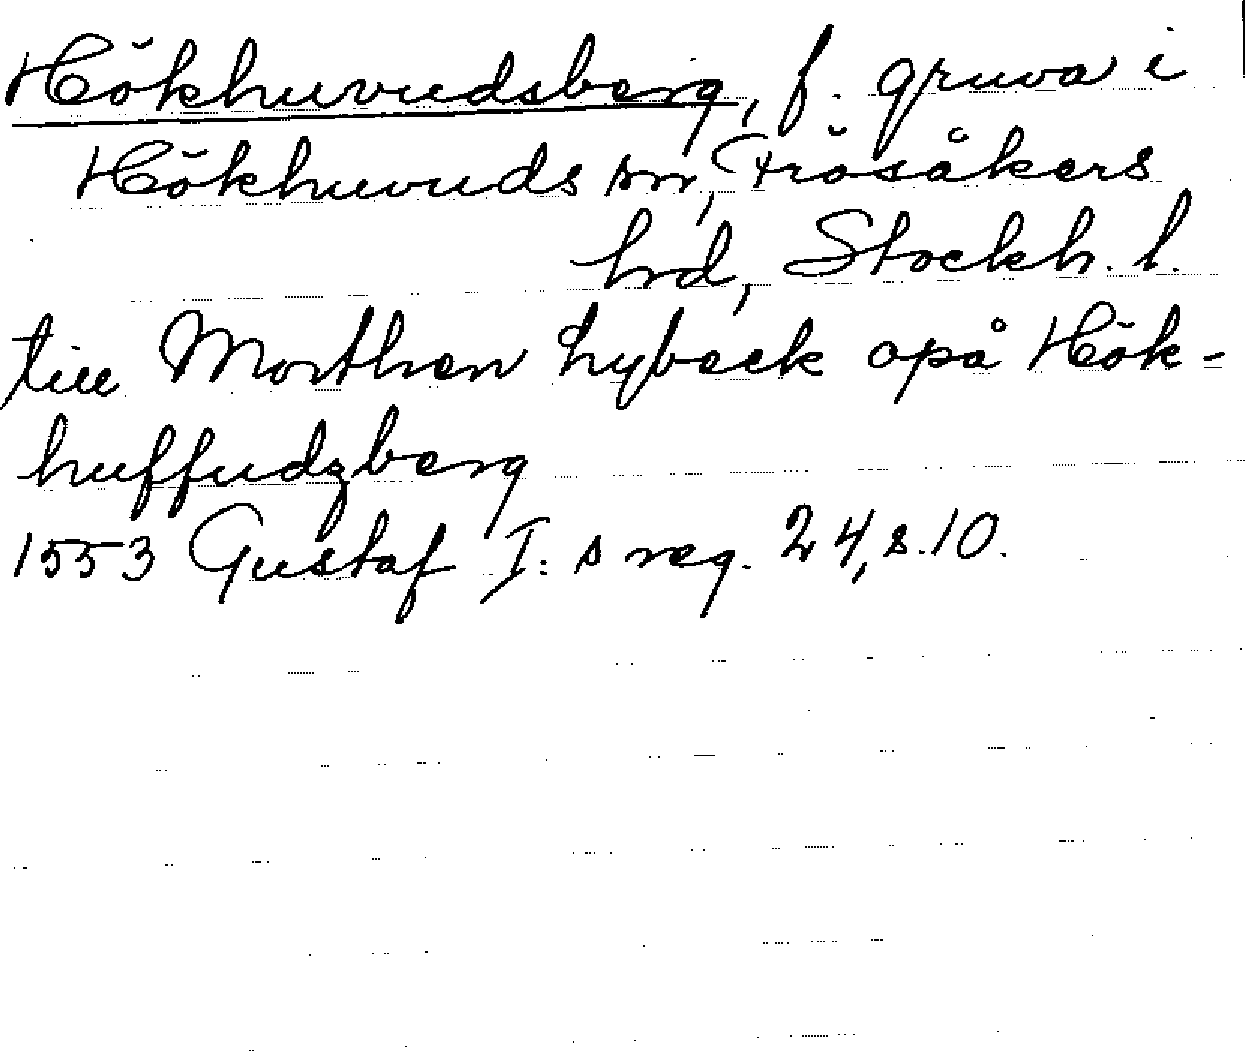 Hökhuvudsberg, f. gruva i
Hökhuvuds sn, Frösåkers
hrd, Stockh. l.
till Morthen hyback opå Hök-
huffudzberg
1553 Gustaf I:s reg. 24, s. 10.